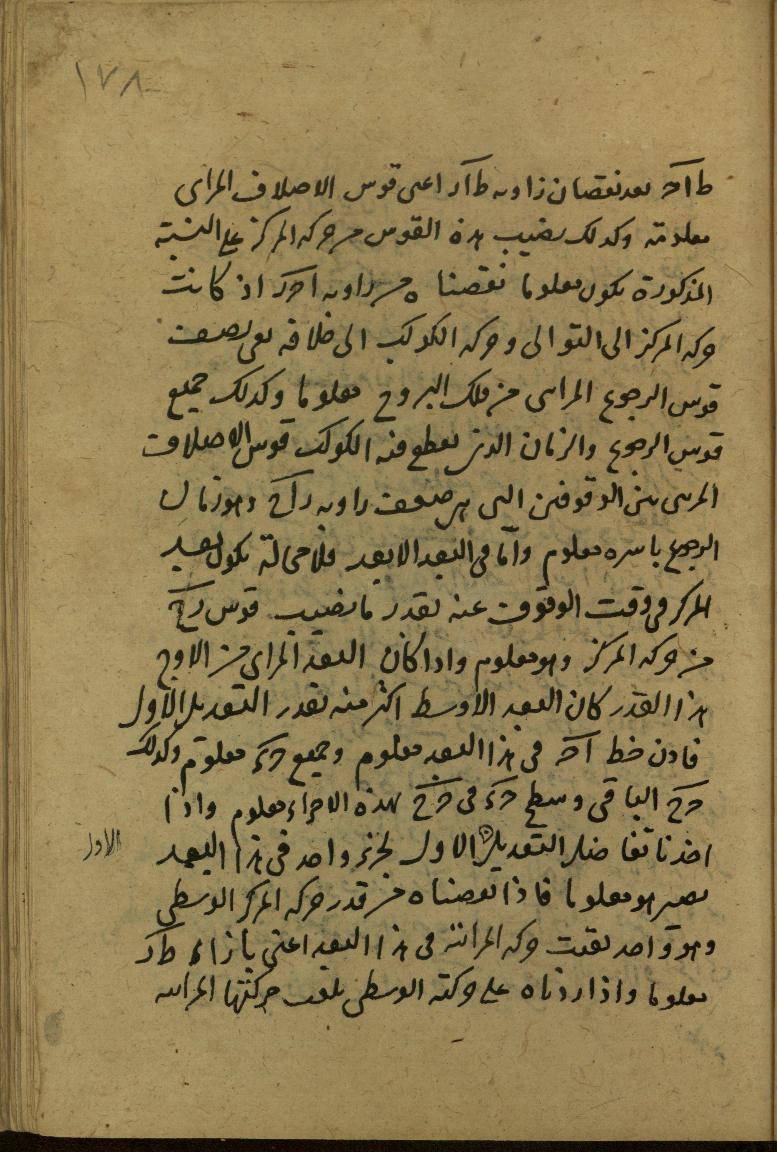 ١٧٨
ط اح بعد نقصان زاويه ط اد اعنى قوس الاصلاف المراى
معلومة وكذلك نصيب هذه القوس من حركه المركز على النسبة
المذكورة يكون معلوما نقصناه من زاويه احد اذ كانت
حركه المركز الى التوالى وحركه الكوكب الى خلافه بقى نصف
قوس الرجوع المراى من فلك البروج معلوما وكذلك جميع
قوس الرجوع والزمان الذى يقطع فيه الكوكب قوس الاصلاف
المرئى بين الوقوفين التى هى ضعف زاويه وهو زمان
الرجوع باسره معلوم واما فى البعد الابعد فلا محالة يكون بعد
المركز فى وقت الوقوف عنه بقدر ما نصيب قوس
من حركه المركز وهو معلوم واذا كان البعد المراى من الاوج
هذا القدر كان البعد الاوسط اكثر منه بقدر التعديل الاول
فاذن خط اح فى هذا البعد معلوم وجميع معلوم وكذلك
الباقى وسطح فى بهذه الاجزاء معلوم واذا
اخذنا تفاضل التعديل الاول لجزء واحد فى هذا البعد
الاول
يصير هو معلوما فاذا نقصناه من قدر حركه المركز الوسطى
وهو واحد بقيت حركه المرائية فى هذا البعد اعنى بازاء ط اد
معلوما واذا زدناه على حركته الوسطى بلغت حركتها المرائيه